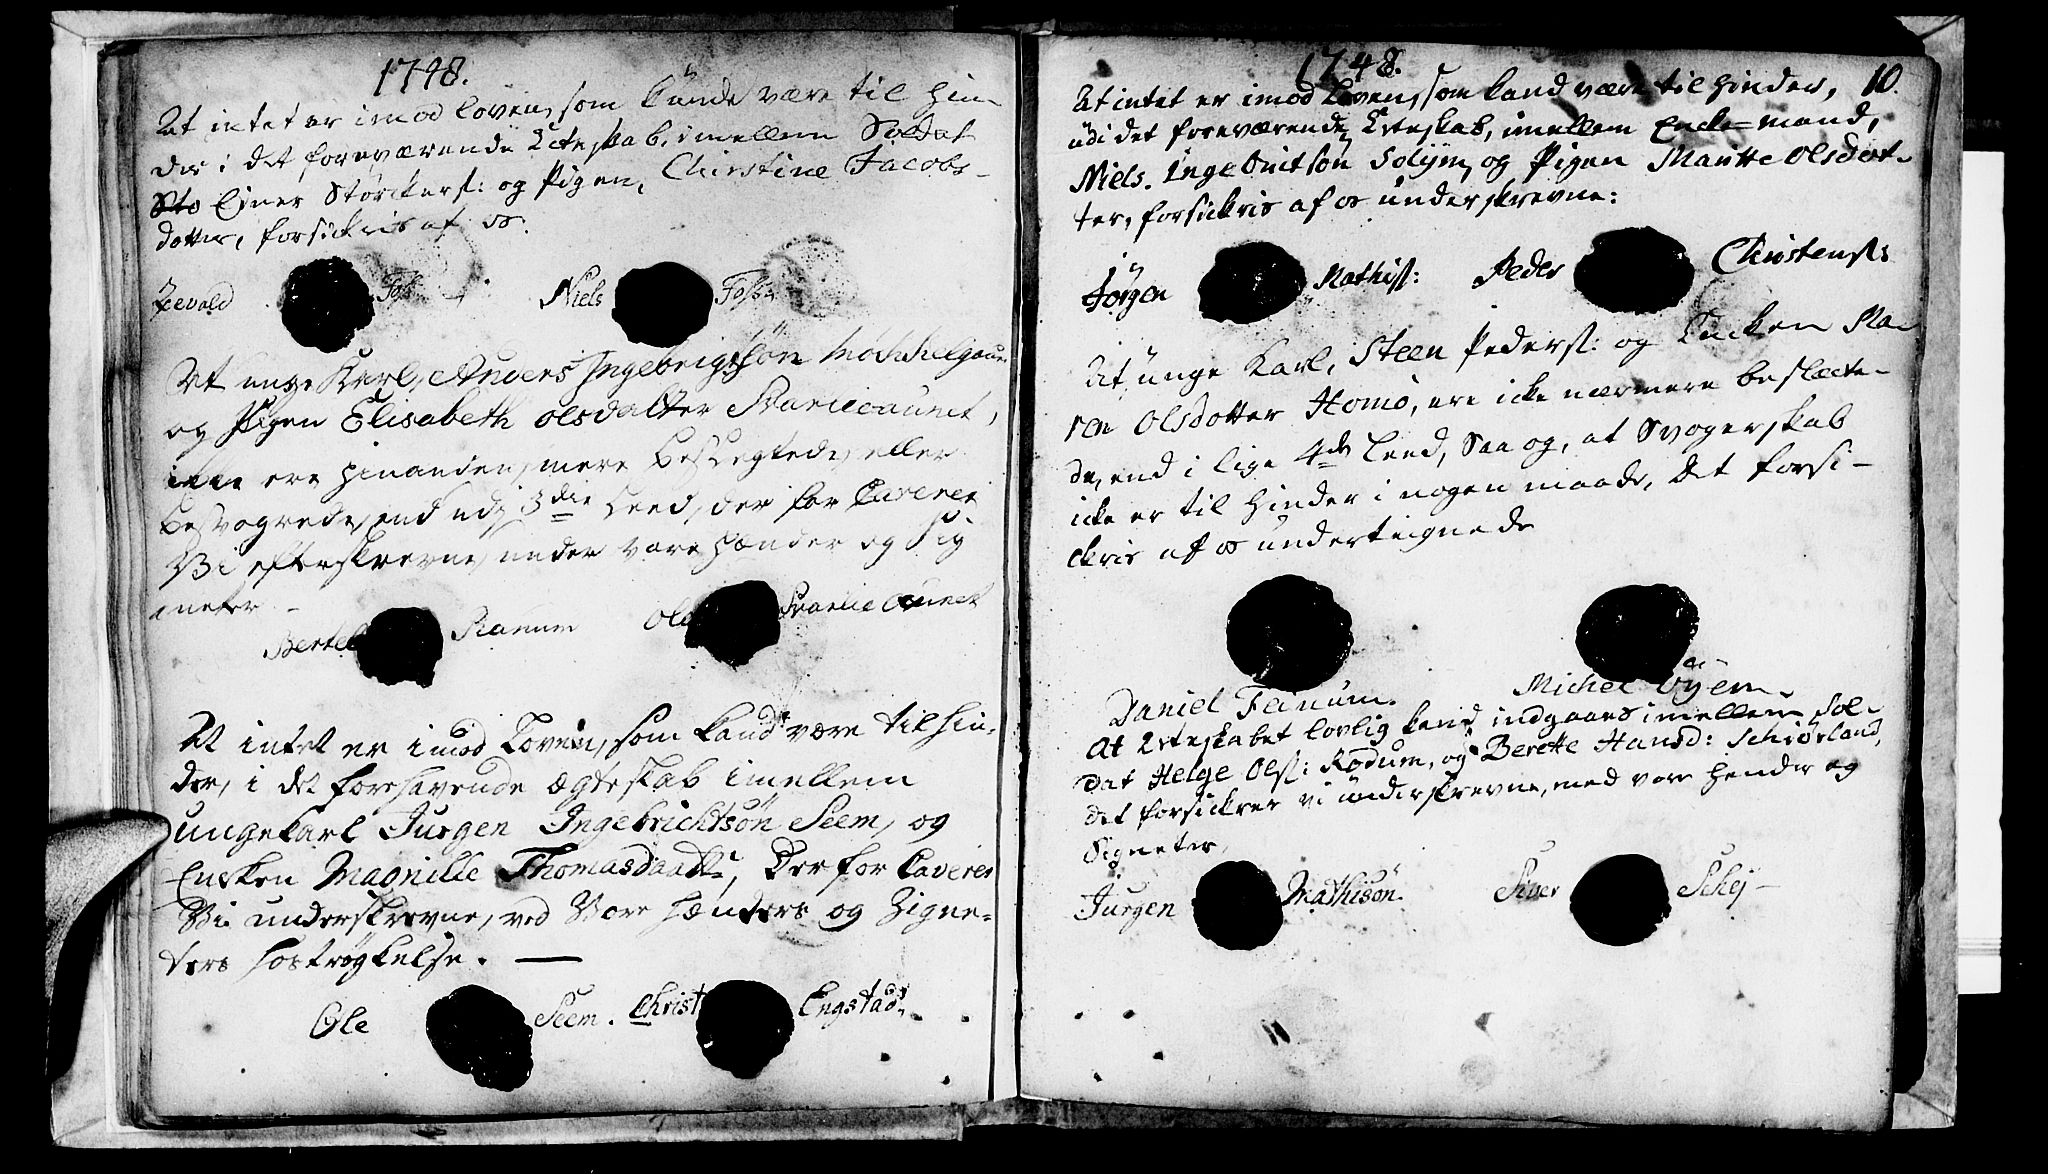 1748.
At intet er imod loven, som kunde være til hin-
der i det foreværende Ecteskab, imellem Soldat
Sto Ejner Störckers: og Pigen, Christine Jacobs-
dotter, forsickris af os.
Zevald Foss Niels Foss
At unge Karl, Anders Ingebrigtsön
og Pigen Elisabeth olsdaatter
icke ere hinanden, mere beslegtede, eller
besvogrede, end udj 3die Leed, der for Caverer
Vi efterskrevne, under vore Hænder og Sig-
neter -
Bertel Ranum Ole
At intet er imod Loven, som kand være til hin-
der, i det forehavende ægteskab imellem
ungekarl Jurgen Ingebrichtsön Seem, og
Encken Magnille Thomasdaatt:, Der for Caverer
Vi underskrevne, ved Vore hænders og Zigne-
ters hoströgkelse. —
Ole Seem. Christ Engstad
1748. 10.
At intet er imod Loven, som kand være til hinder,
udi det foreværende Ecteskab, imellem Encke-mand,
Niels. Ingebrictsön Solym, og Pigen Maritte Olsdot-
ter, forsickris af os underskrevne:
Jörgen Mathiss: Peder Christens:
At, unge Karl, Steen Peders: og Encken Ma-
ren Olsdotter Homo, ere icke nærmere beslecte-
de, end i lige 4de Leed, Saa og, at Svogerskab
icke er til hinder i nogen maade, Det forsi-
ckris af os undertegnede
Daniel Fernum. Michel Öÿem.
At Ecteskabet lovlig kand indgaaes imellem Sol-
dat Helge Ols: Rodum, og Berette Hansd: Schiörland,
det forsickrer vi underskrevne, med vore hender og
Signeter,
Jurgen Mathisön. Siver Schej-